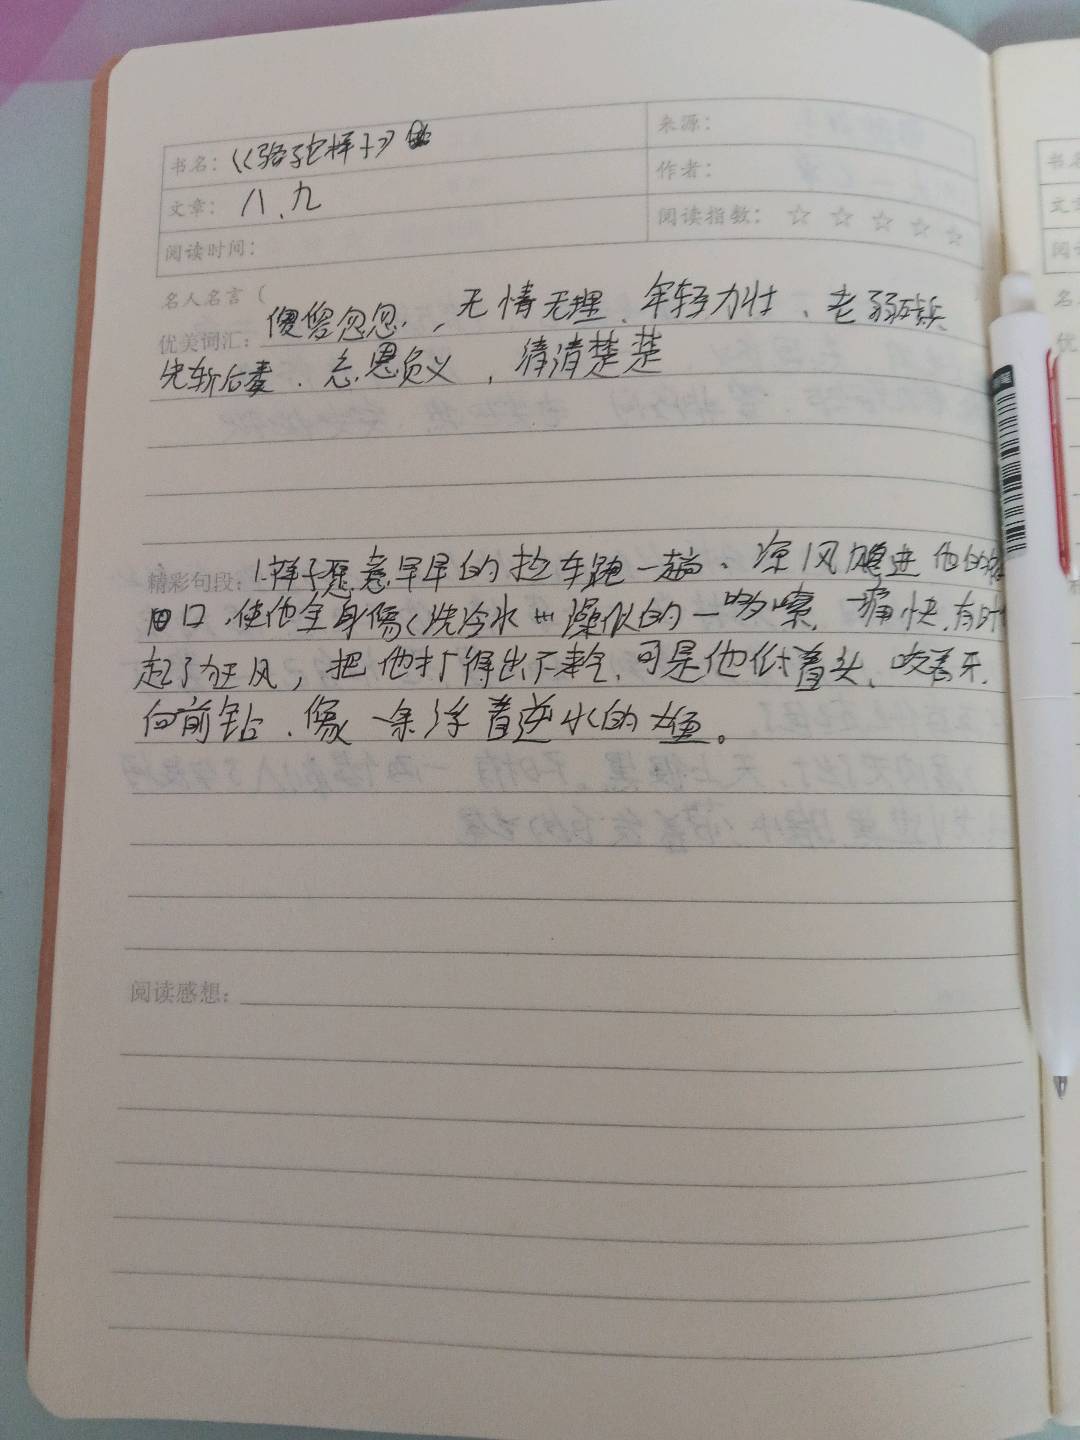 书名：《骆驼祥子》
来源：
文章：八、九
作者：
阅读时间：
阅读指数：☆ ☆ ☆ ☆ ☆
名人名言（
优美词汇：傻傻忽忽，无情无理、年轻力壮、老弱残兵
先斩后奏、忘恩负义，清清楚楚
精彩句段：1.祥子愿意早早的拉车跑一趟、凉风飕进他的
口，使他全身像洗冷水澡似的一哆嗦，痛快，有时
起了狂风，把他打得出不来气，可是他低着头、咬着牙，
向前钻、像一条浮着逆水的大鱼。
阅读感想：